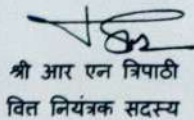 श्री आर एन त्रिपाठी
वित नियंत्रक सदस्य